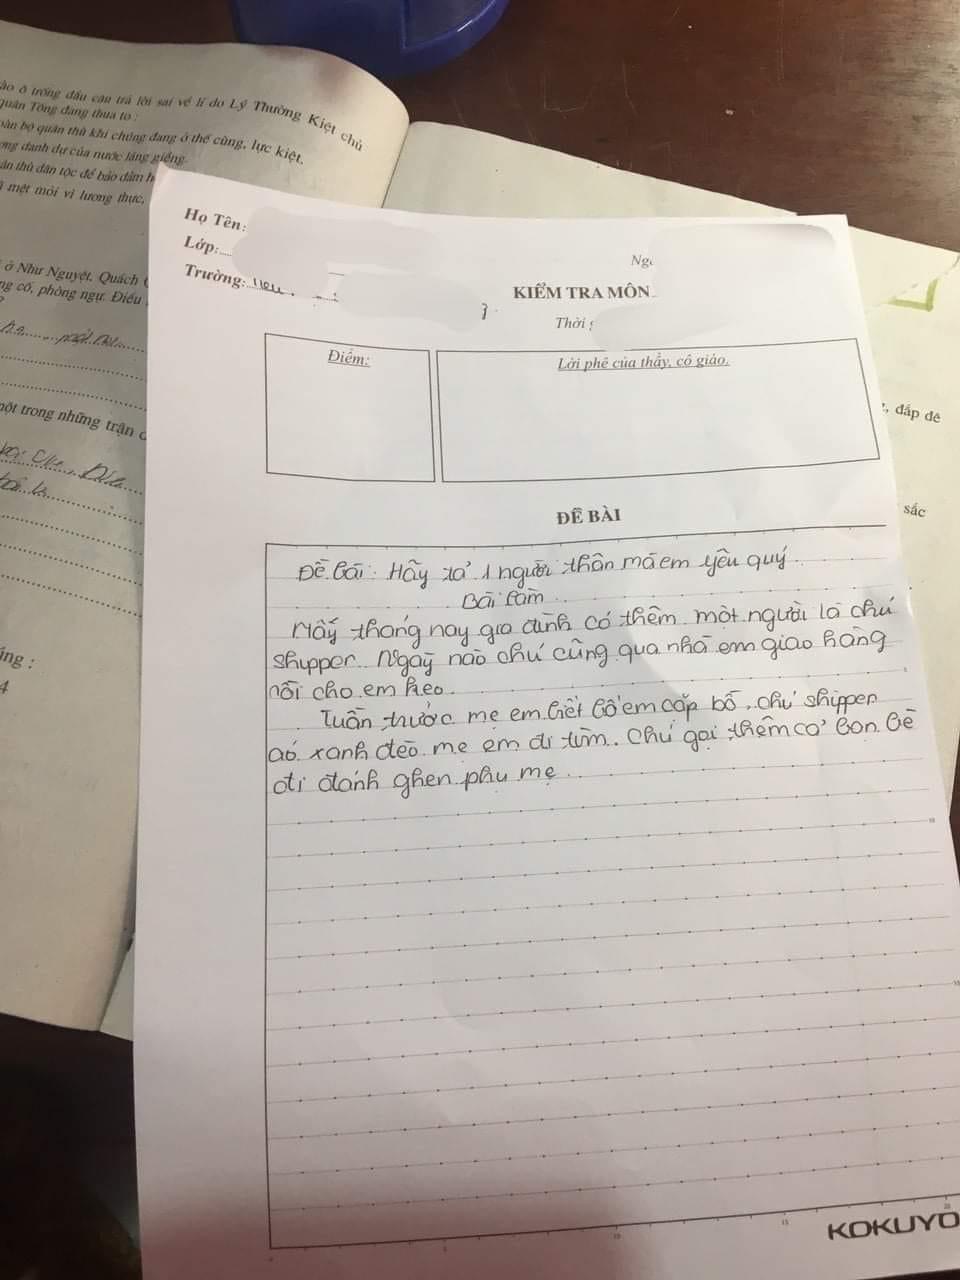 ào ô trống đầu câu trả lời sai về lí do Lý Thường Kiệt chủ
quân Tống đang thua to :
oàn bộ quân thù khi chúng đang ở thế cùng, lực kiệt.
ơng danh dự của nước láng giềng.
ân thù dân tộc để bảo đảm h
mệt mỏi vì lương thực,
ở Như Nguyệt. Quách
ng cố, phòng ngự. Điều
một trong những trận
úng :
4
Họ Tên:
Lớp:
Trường:
KIỂM TRA MÔN
Thời g
Điểm:
Lời phê của thầy, cô giáo.
, đắp đê
sắc
ĐỀ BÀI
Đề bài: Hãy tả 1 người thân mà em yêu quý
Bài làm
Mấy tháng nay gia đình có thêm một người là chú
shipper. Ngày nào chú cũng qua nhà em giao hàng
rồi cho em kẹo.
Tuần trước mẹ em biết bố em cặp bồ, chú shipper
áo xanh đèo mẹ em đi tìm. Chú gọi thêm cả bạn bè
đi đánh ghen phụ mẹ.
KOKUYO